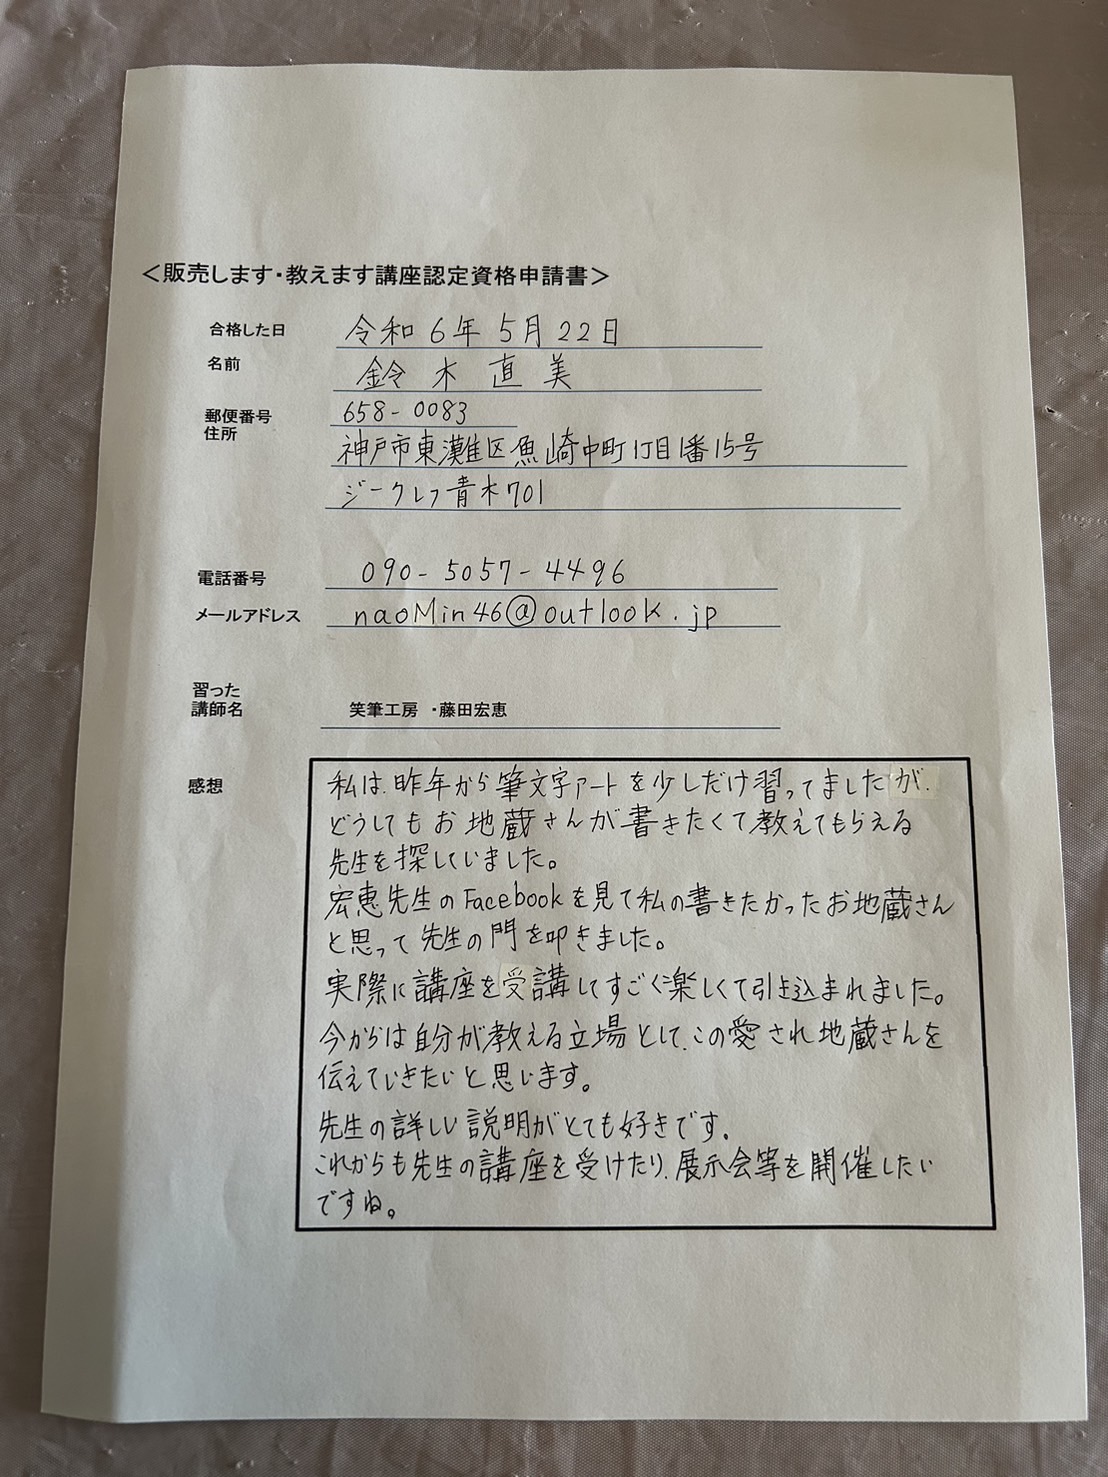 ＜販売します・教えます講座認定資格申請書＞
合格した日 令和6年5月22日
名前 鈴木直美
郵便番号 658-0083
住所 神戸市東灘区魚崎中町1丁目1番15号
ジークレフ青木701
電話番号 090-5057-4496
メールアドレス naoMin46@outlook.jp
習った
講師名 笑筆工房 ・藤田宏恵
感想
私は、昨年から筆文字アートを少しだけ習ってましたが、
どうしてもお地蔵さんが書きたくて教えてもらえる
先生を探していました。
宏恵先生のFacebookを見て私の書きたかったお地蔵さん
と思って先生の門を叩きました。
実際に講座を受講してすごく楽しくて引き込まれました。
今からは自分が教える立場として、この愛され地蔵さんを
伝えていきたいと思います。
先生の詳しい説明がとても好きです。
これからも先生の講座を受けたり、展示会等を開催したい
ですね。